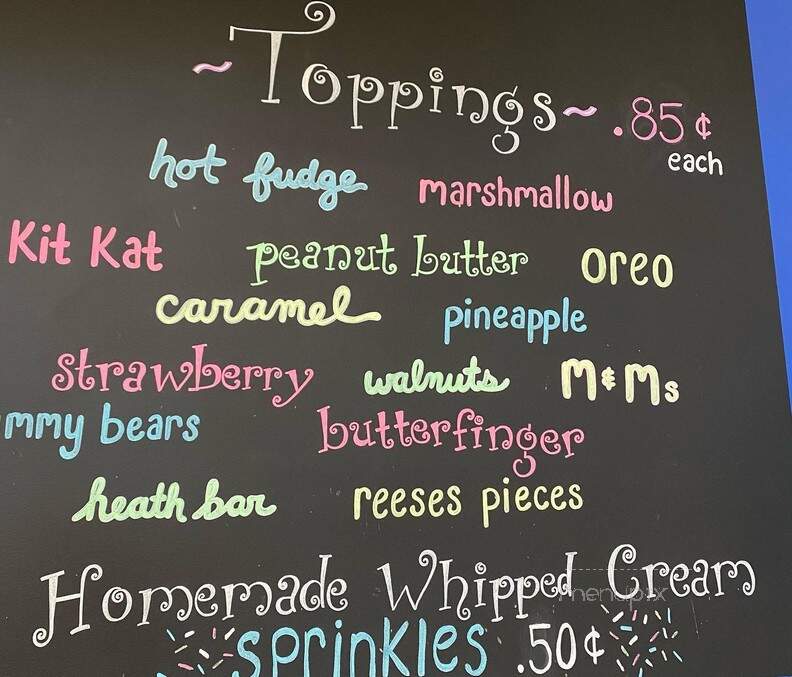 ~Toppings~ .85¢
each
hot fudge marshmallow
Kit Kat peanut butter oreo
caramel pineapple
strawberry walnuts M&Ms
mmy bears butterfinger
heath bar reeses pieces
Homemade Whipped Cream
menupix
sprinkles .50¢